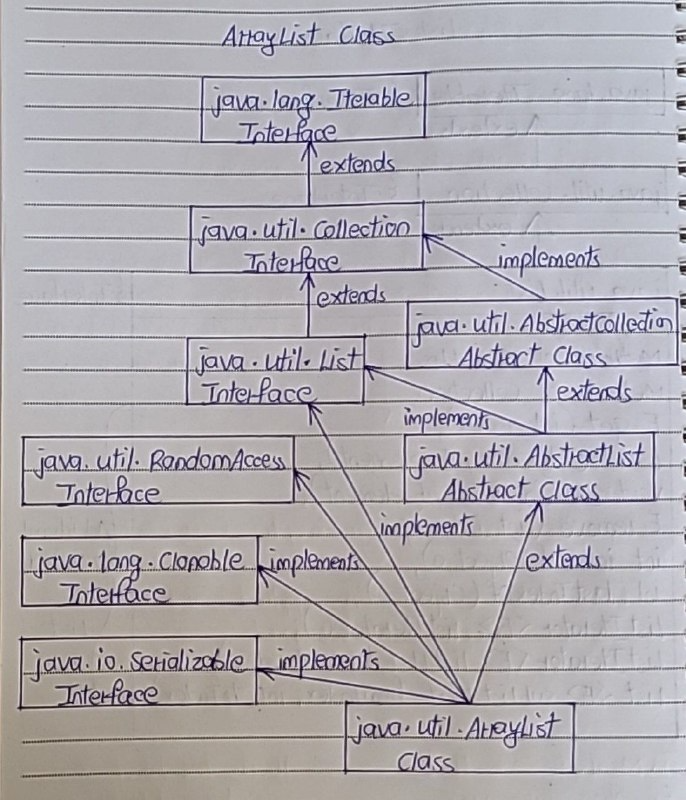 ArrayList Class
java.lang.Iterable
Interface
extends
java.util.Collection
Interface
implements
extends
java.util.AbstractCollection
Abstract Class
java.util.List
Interface
extends
implements
java.util.RandomAccess
Interface
java.util.AbstractList
Abstract Class
implements
java.lang.Clonable
Interface
implements
extends
java.io.Serializable
Interface
implements
java.util.ArrayList
Class